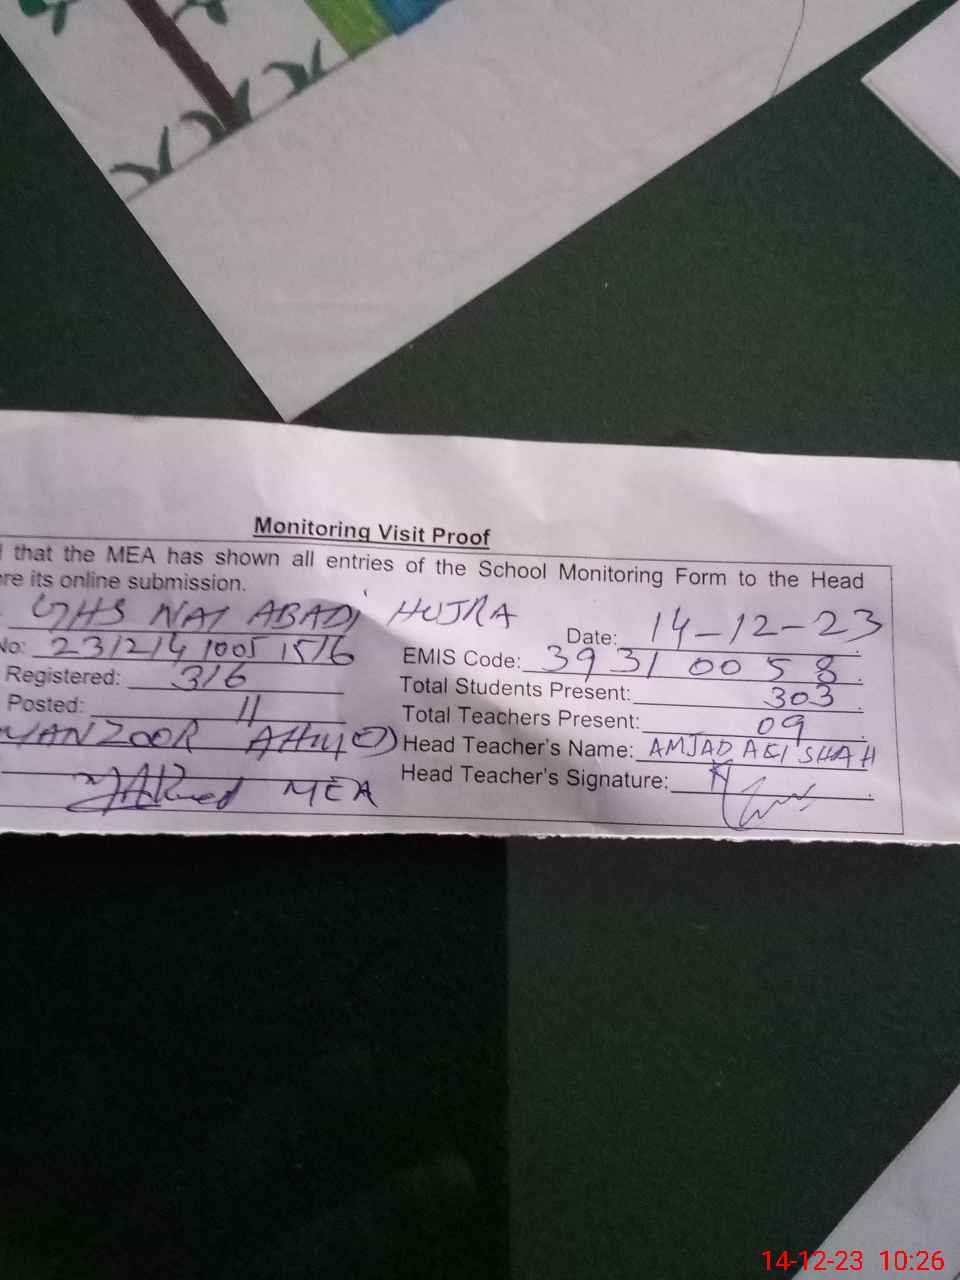 Monitoring Visit Proof
that the MEA has shown all entries of the School Monitoring Form to the Head
re its online submission.
GHS NAI ABADI HUJRA
Date: 14-12-23
No: 231214100515 16
EMIS Code: 39310058
Registered: 316
Total Students Present: 303
Posted: 11
Total Teachers Present: 09
MANZOOR AHMED
Head Teacher's Name: AMJAD ALI SHAH
MEA
Head Teacher's Signature:
14-12-23 10:26